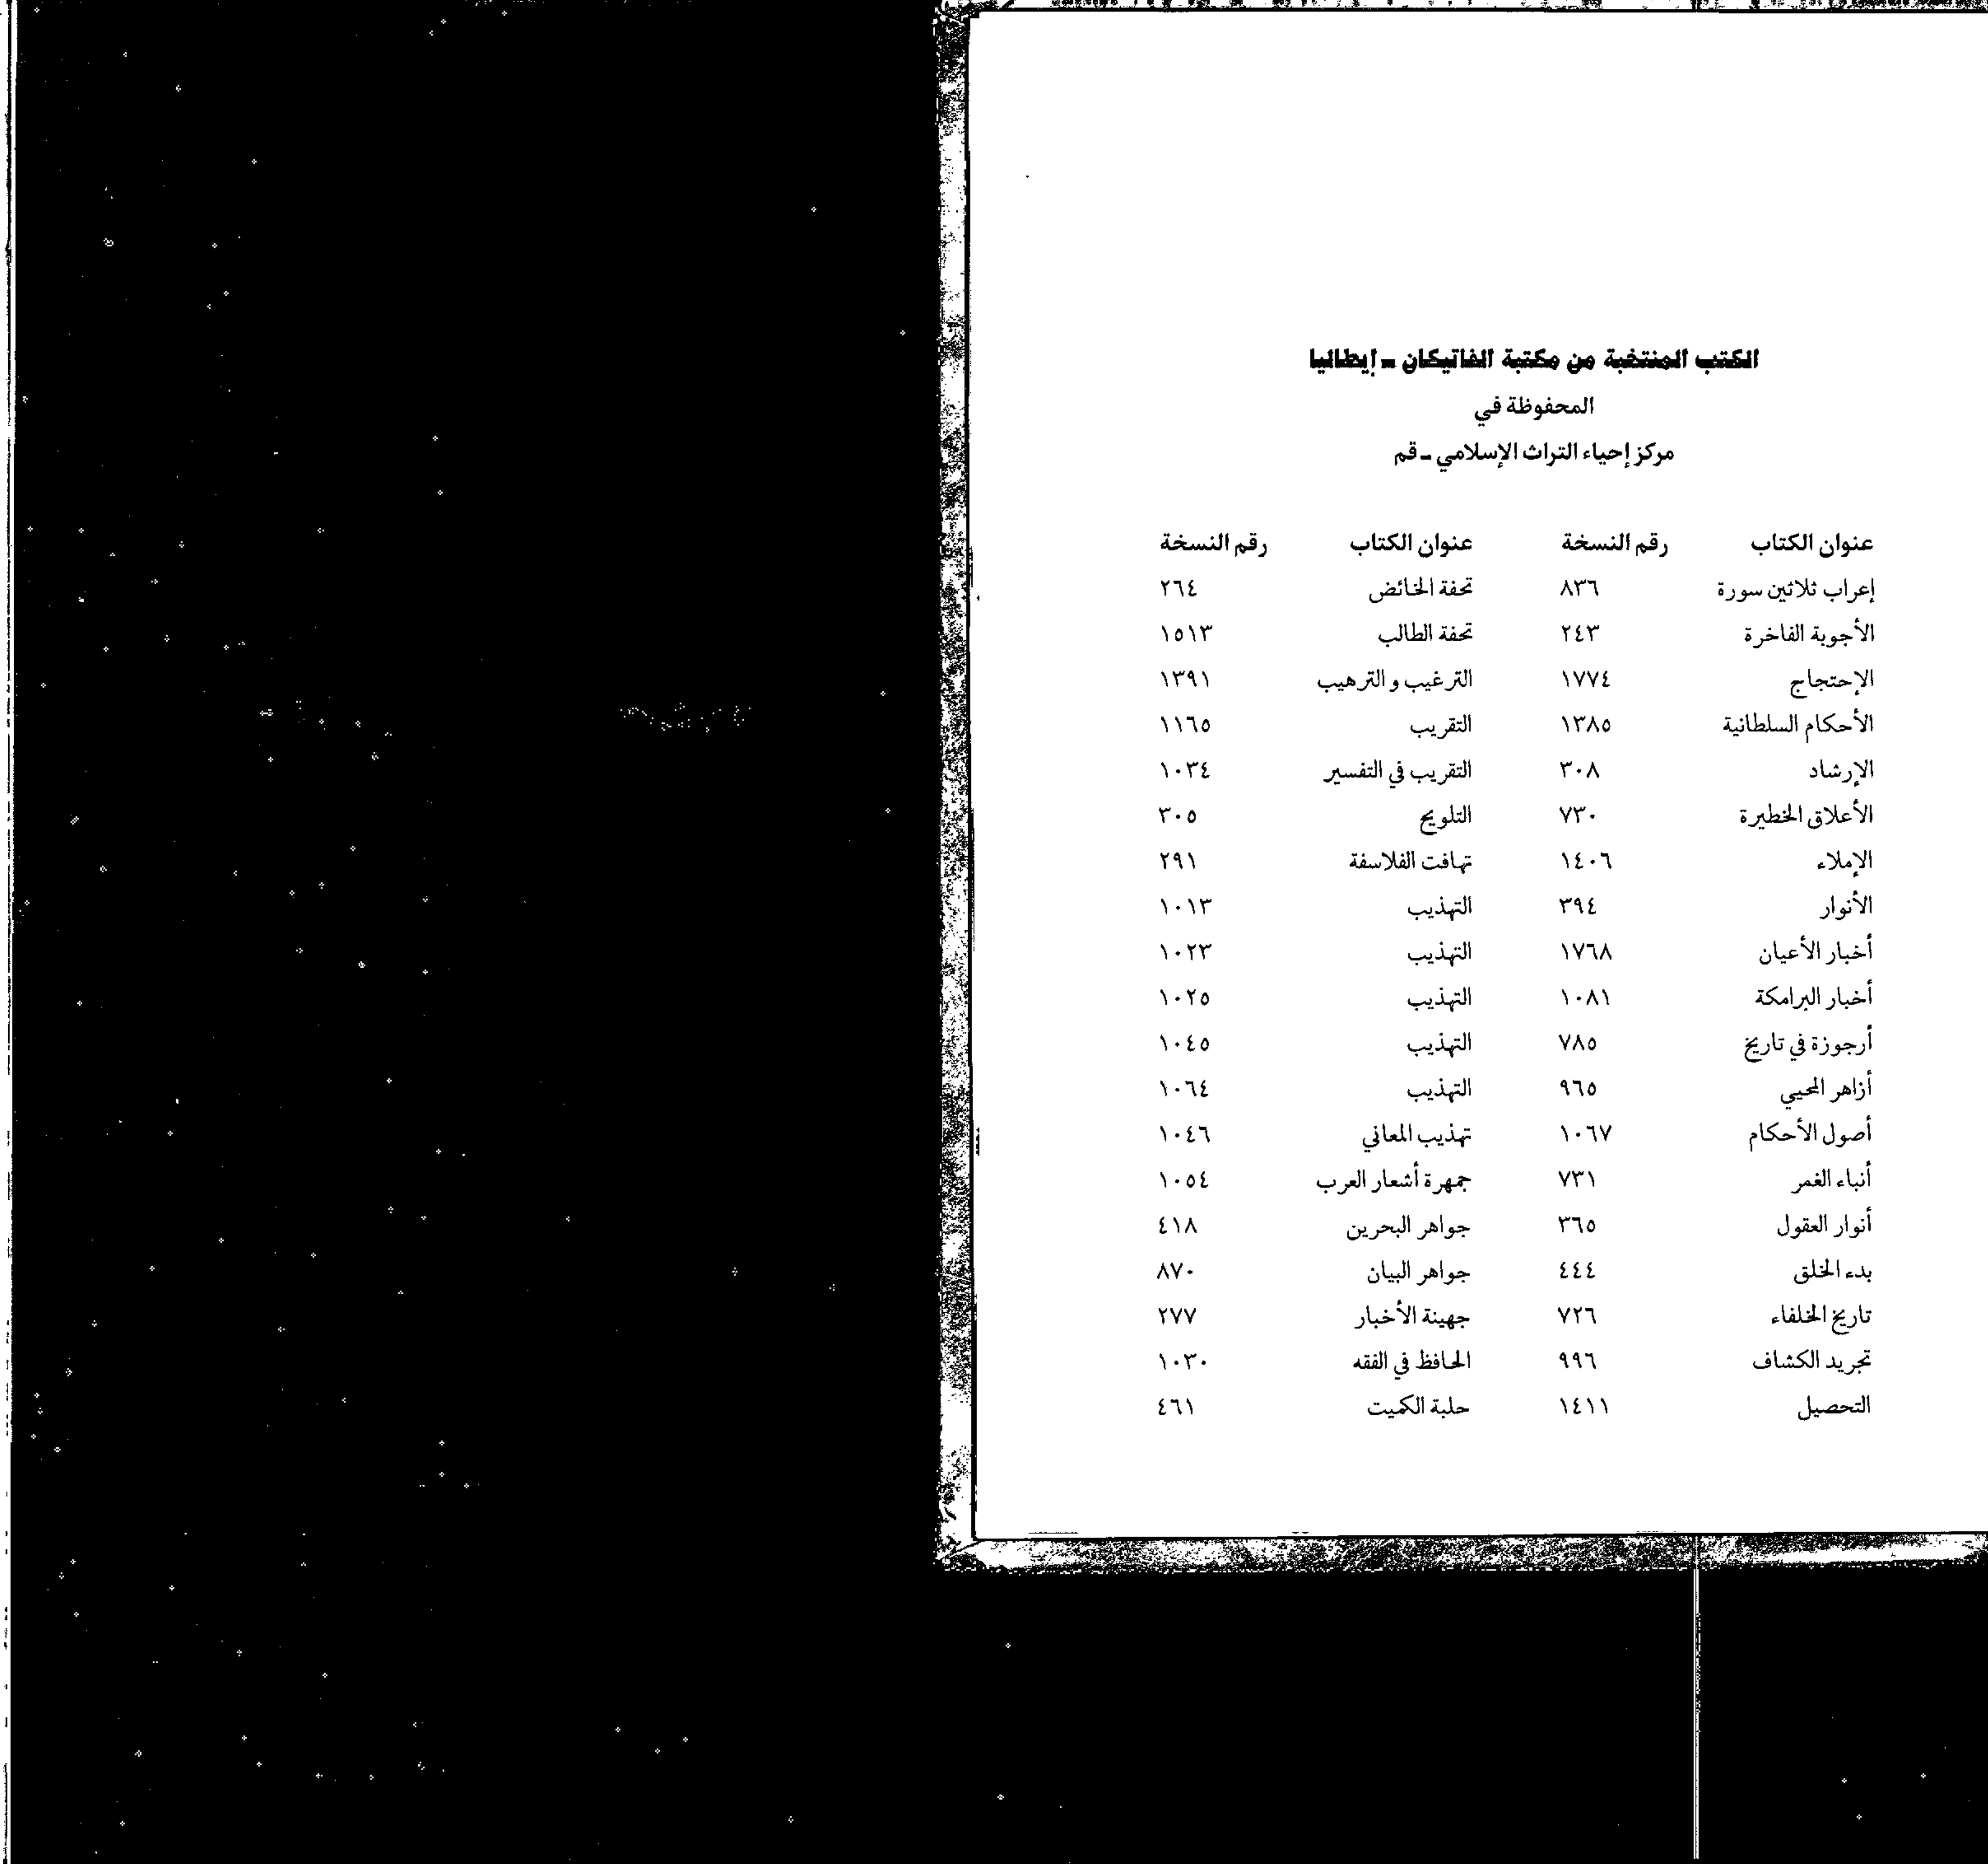 الكتب المنتخبة من مكتبة الفاتيكان ـ إيطاليا
المحفوظة في
مركز إحياء التراث الإسلامي ـ قم
عنوان الكتاب رقم النسخة عنوان الكتاب رقم النسخة
إعراب ثلاثين سورة ٨٣٦ تحفة الخائض ٢٦٤
الأجوبة الفاخرة ٢٤٣ تحفة الطالب ١٥١٣
الإحتجاج ١٧٧٤ الترغيب و الترهيب ١٣٩١
الأحكام السلطانية ١٣٨٥ التقريب ١١٦٥
الإرشاد ٣٠٨ التقريب في التفسير ١٠٣٤
الأعلاق الخطيرة ٧٣٠ التلويح ٣٠٥
الإملاء ١٤٠٦ تهافت الفلاسفة ٢٩١
الأنوار ٣٩٤ التهذيب ١٠١٣
أخبار الأعيان ١٧٦٨ التهذيب ١٠٢٣
أخبار البرامكة ١٠٨١ التهذيب ١٠٢٥
أرجوزة في تاريخ ٧٨٥ التهذيب ١٠٤٥
أزاهر المحيي ٩٦٥ التهذيب ١٠٦٤
أصول الأحكام ١٠٦٧ تهذيب المعاني ١٠٤٦
أنباء الغمر ٧٣١ جمهرة أشعار العرب ١٠٥٤
أنوار العقول ٣٦٥ جواهر البحرين ٤١٨
بدء الخلق ٤٤٤ جواهر البيان ٨٧٠
تاريخ الخلفاء ٧٢٦ جهينة الأخبار ٢٧٧
تجريد الكشاف ٩٩٦ الحافظ في الفقه ١٠٣٠
التحصيل ١٤١١ حلبة الكميت ٤٦١